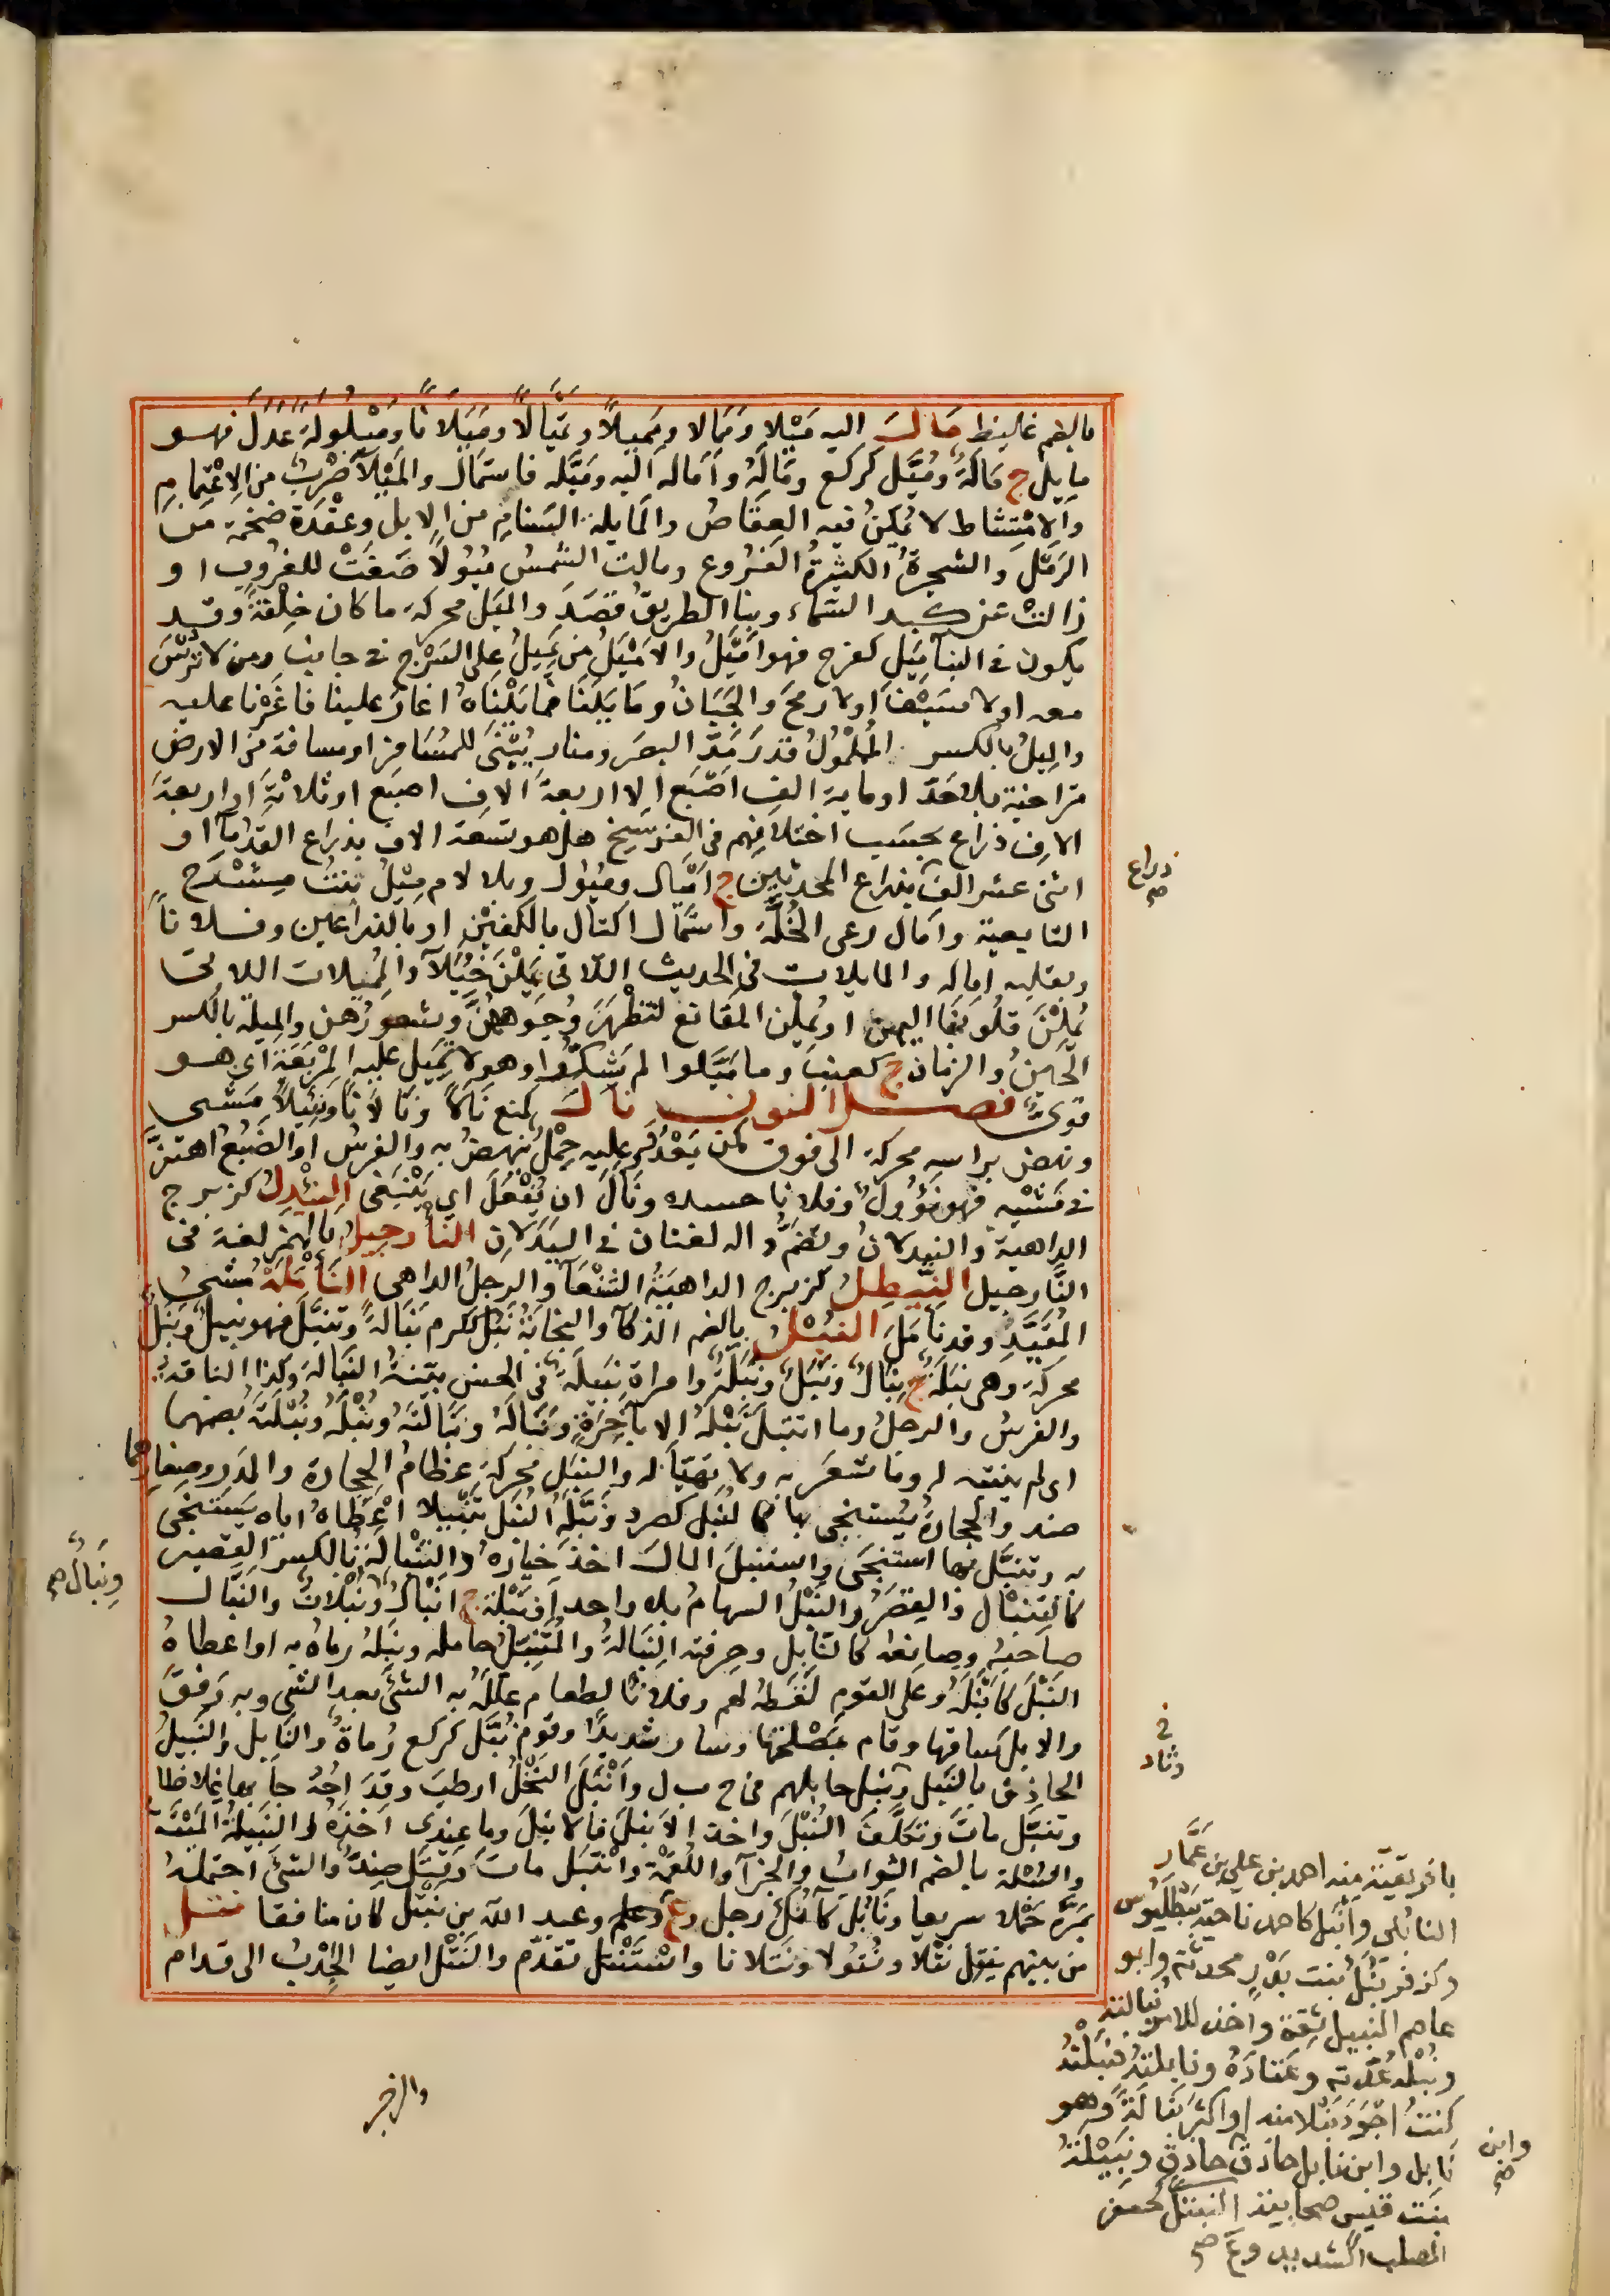 بالضم غليظ مَالَ اليه مَيْلا ومَمَالا ومَمِيلًا وتَمْيَالًا ومَيَلَانًا ومَيْلُولَةً عدَلَ فهو
مايل ج مَالَةٌ ومُيَّل كركع ومَالَةٌ وأماله اليه ومَيَّله فاستمال والمَيْلآ ضَرْبٌ من الاعْتِمام
والامْتِشاط لا يُمِيلنَ فيه العِقَاصُ والمايلة السَّنامِ من الابل وعقدة ضخمة من
الرَّمْل والشجرةُ الكثيرةُ الفروع ومالت الشمسُ مُيُولًا ضَيَّفَتْ للغُروب او
زالتْ عن كبد السَّماء وبنا الطريقُ قَصَدَ والمَيَل محركة ما كان خِلْقةً وقد
يكون في البنآ مَيِل كفرح فهو أمْيَلُ والامْيَلُ من يَمِيلُ على السَرْج في جانب ومن لا تُرْسَ
معه او لا سَيْفَ او لا رمحَ والجَبَانُ ومَايَلَنَا فمايلْنَاهُ اغارَ علينا فاغَرْنا عليه
والمِيلُ بالكسر المُلْمُولُ وقدرُ مَدّ البصر ومنار يُبْنَى للمُسَافر او مسافة من الارض
متراخية بلا حَدّ او مايةَ الف اصْبَع الا اربعةَ الاف اصبع او ثلاثةُ او اربعةُ
الاف ذراع بحسب اختلافهم في الفرسخ هل هو تسعة الاف بذراع القدمآ او
اثنى عشر الف بذراع المحدثين ج اميال وميول وبلا لام مِيْلُ بنتُ مِشْرَح
ذراع صح
التابعية وامال رعى الخُلَّةَ واستمال اكتال بالكفين او بالذراعين وفلانًا
وبقلبه اماله والمايلات في الحديث اللاتى يَمِلْنَ خُيَلآ والمُمِيلات اللاتى
يُمِلْنَ قلُوبَنا اليهن او يُمِلْن المقانعَ لتظهرَ وُجوههنَّ وشعورُهن والمِيلة بالكسر
الحِينُ والزمان ج كعنب وما مَيَّلوا لم يَشكُّوا وهو لا تَمِيل عليه المِرْبَعَةُ اى هو
قوىٌّ فصل النون نَأَلَ كمنع نَألاً ونَألَانًا ونَئِيلًا مشى
ونهض براسه محركه الى فوق كمن يَعْدُو وعليه حِمْلٌ ينهضُ به والفرسُ او الضَبُعُ اهتزَّ
في مَشْيِه فهو نَؤُولٌ وفلانا حسده ونَأَلَ ان يَفْعَلَ اى يَنْبَغى النِئْدِل كزبرج
الداهية والنيدلان وتضم داله لغتان في النَيْدَلان النَأرجيل بالهمز لغة في
النَّارجيل النِئْطِلُ كزبرج الداهيةُ الشَنْعآ والرجلُ الداهى النَأْمَلَةُ مَشْىُ
المُقَيَّدِ وقد نَأمَلَ النُبْلُ بالضم الذكآ والنجابةُ نَبُلَ ككرم نَبَالةً وتَنَبَّلَ فهو نبيلٌ ونَبَلٌ
محركة وهى نَبَلَةٌ ج نِبَالٌ ونَبَلٌ ونَبَلَةٌ وامراة نبيلة في الحسن بَيِّنةُ النَبالة وكذا الناقةُ
والفرسُ والرجلُ وما انتبَلَ نَبْلَهُ الا بآخِرَةٍ ونَبَالَهُ ونَبَالَتَهُ ونُبْلَهُ ونُبْلَتَهُ بضمهما
اى لم ينتبه له وما شعَرَ به ولا تهيَّأ له والنبَل محركةً عظامُ الحجارة والمدر وصغارهما
ضد والحجارةُ يُستنجى بها كالنُبَل كصرد ونَبَّلَهُ النُبَل تَنْبِيلا اعْطَاهُ اياه يَستنجى
به وتنبَّل بها استنجَى واستنبلَ المالَ اخذ خِيارَهُ والتِنْبالةُ بالكسر القصير
ونَبَالٌ صح
كالتِنْبال والقِصَرُ والنَبْلُ السهامُ بلا واحد او نَبْلة ج انْبالٌ ونُبْلانٌ والنَبَّالُ
صاحبُه وصانعه كالنابل وحِرفته النِبَالةُ والمُتَنَبِّلُ حامله ونبلهُ رماهُ به او اعطاهُ
النَبْلَ كَانْبَلَهُ وعلى القوم لَقَطَهُ لهم وفلانًا بالطعام عَلَّلَهُ به الشئَ بعد الشئ وبه رَفَقَ
والابلَ ساقها وقام بمَصْلَحَتِها وسار شديدًا وقوم نُبَّل كركع رُماةٌ والنَابِل والنَبِيلُ
الحاذق بالنَبل ونبل حابلهم في ح ب ل وأنْبَلَ النَخْلُ ارطبَ وقِدَاحَهُ جآ بها غِلاظا
في وثاد
وتنبَّل ماتَ وتكلَّفَ النُبْلَ واخذ الانبَلَ فالانبَلَ وما عندى اخذَهُ والنَبِيلَةُ المَيْتَةُ
والنُبْلة بالضم الثوابُ والجزآ واللُقْمَة وانْتَبَل ماتَ وقتَل ضِدٌّ والشئَ احتمله
بمَرَّة حَمْلا سريعا ونَابُلُ كآنُك رجل وع وعبد الله بن نَبْتَل كان منافقا نتل
من بينهم ينتِل نَتْلا ونُتُولا ونَتَلانا واسْتَنْتَل تقدّم والنَتْل ايضا الجَذْبُ الى قدام
بافريقيّة منه احمد بن على بن عَمَّار
النابُلى وأنْبَل كاحمد ناحية ببَطَلْيوس
وكزفر نُبَلُ بنت بَدْر محدثة وابو
عاصم النبيل ثقة واخذ للامر نُبَالتَه
ونُبْلَه عُدَّته وعَتادَهُ ونابلتُه فنَبَلْتُه
كنتُ اجْوَدَ نَبْلا منه او اكثرَ نَبَالَةً وهو
نَابل وابن نابل حاذق وابن حاذق ونُبَيْلَةُ
وابن صح
بنت قيس صحابية النبتل كجعفر
الصلب الشديد وع صح
والزجر